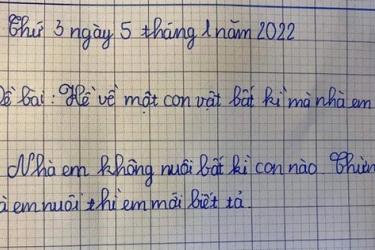 Thứ 3 ngày 5 tháng 1 năm 2022
bài: Kể về một con vật bất kì mà nhà em
Nhà em không nuôi bất kì con nào.
em nuôi thì em mới biết tả.